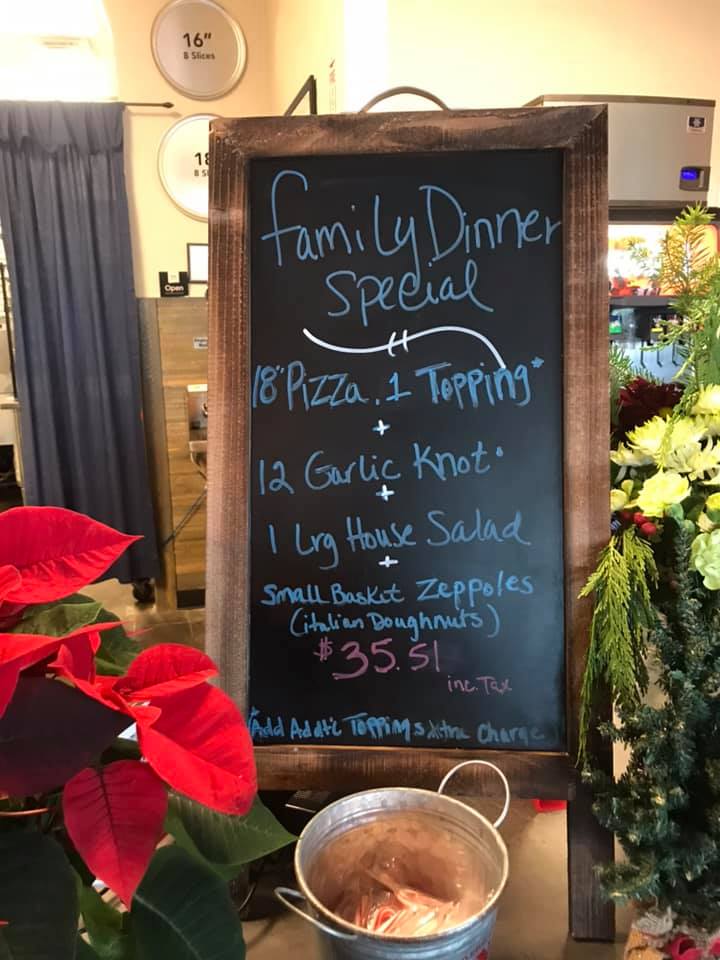 16"
8 Slices
18
8 Sl
Open
Family Dinner
Special
18" Pizza . 1 Topping*
+
12 Garlic Knot
+
1 Lrg House Salad
+
Small Basket Zeppoles
(italian Doughnuts)
$35.51
inc. Tax
*Add Toppings xtra Charge